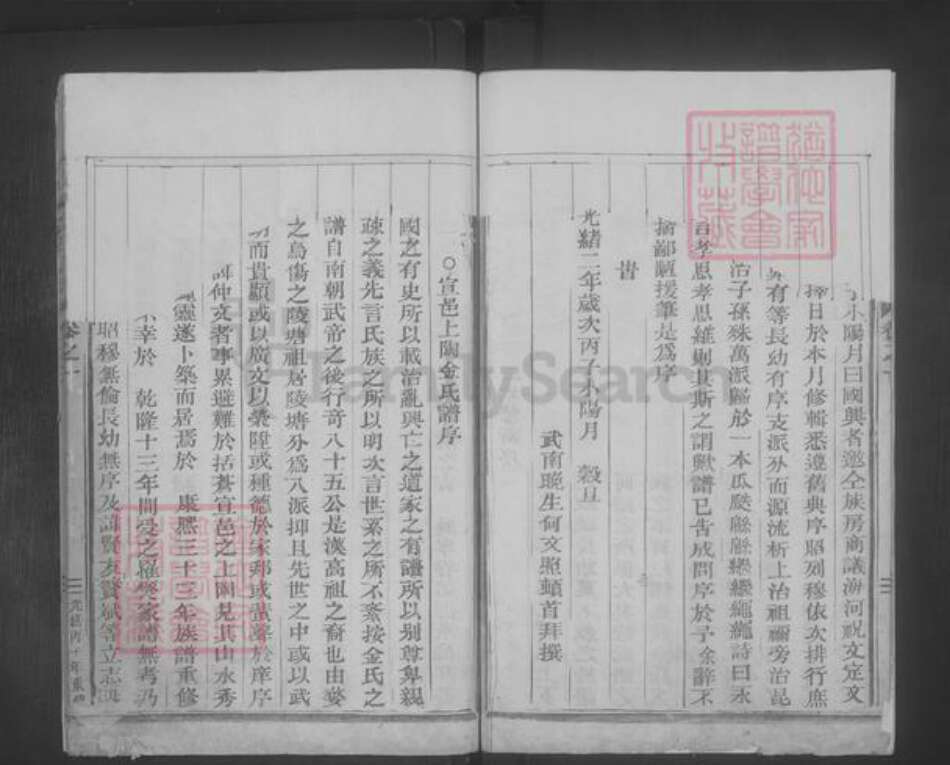 小陽月曰國興者邀仝族房商議海河祝文定文
擇日於本月修輯悉遵舊典序照列穆依次排行庶
有等長幼有序支派外而源流析上治祖禰旁治昆
治子孫殊萬派歸於一本瓜瓞緜緜繼繼繩繩詩曰永
言孝思孝思維則其斯之謂歟譜已告成問序於予余辭不
揣鄙陋援筆是爲序
旹
光緒二年歲次丙子小陽月 穀旦
武南晚生何文照頓首拜撰
○宣邑上陶金氏譜序
國之有史所以載治亂興亡之道家之有譜所以别尊卑親
疎之義先言氏族之所以明次言世系之所不紊按金氏之
譜自南朝武帝之後行奇八十五公是漢高祖之裔也由婺
之烏傷之陵塘祖居陵塘分爲八派抑且先世之中或以武
而貴顯或以廣文以榮陞或種德於家邦或蜚聲於庠序
仲文者事累避難於括蒼宣邑之上陶見其山水秀
靈遂卜築而居焉於 康熙三十三年族譜重修
不幸於 乾隆十三年間受之罹災家譜無考乃
昭穆無倫長幼無序及請賢友賢斌等立志
卷之一